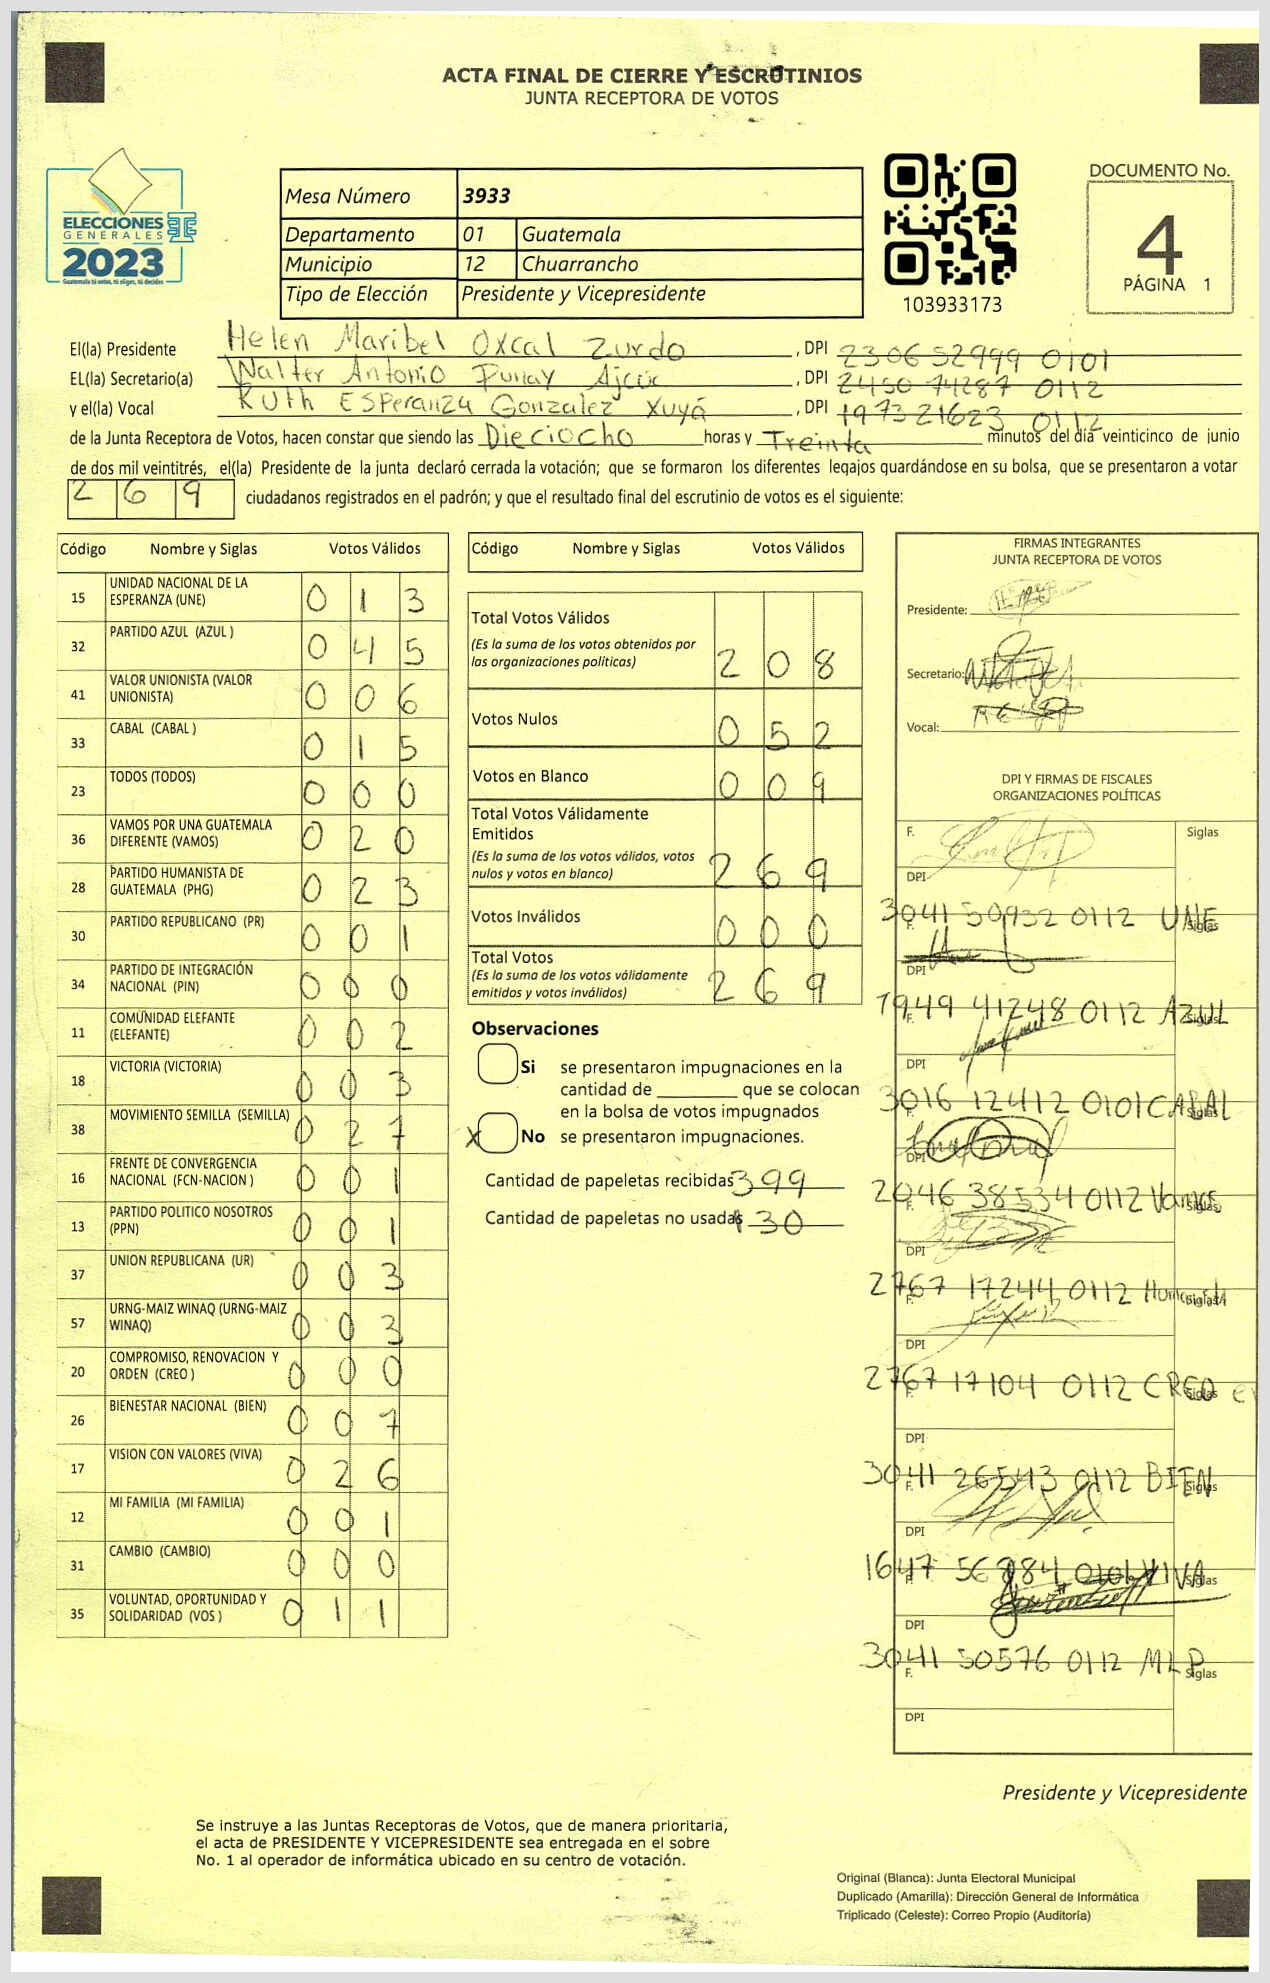 ACTA FINAL DE CIERRE Y ESCRUTINIOS
JUNTA RECEPTORA DE VOTOS
ELECCIONES
GENERALES
2023
Guatemala tú votas, tú eliges, tú decides
Mesa Número 3933
Departamento 01 Guatemala
Municipio 12 Chuarrancho
Tipo de Elección Presidente y Vicepresidente
103933173
DOCUMENTO No.
4
PÁGINA 1
El(la) Presidente Helen Maribel Oxcal Zurdo, DPI 2306 52999 0101
EL(la) Secretario(a) Walter Antonio Punay Ajcúc, DPI 2450 74287 0112
y el(la) Vocal Ruth ESPeranza Gonzalez Xuyá, DPI 1973 21623 0112
de la Junta Receptora de Votos, hacen constar que siendo las Dieciocho horas y Treinta minutos del día veinticinco de junio
de dos mil veintitrés, el(la) Presidente de la junta declaró cerrada la votación; que se formaron los diferentes legajos guardándose en su bolsa, que se presentaron a votar
2 6 9 ciudadanos registrados en el padrón; y que el resultado final del escrutinio de votos es el siguiente:
Código Nombre y Siglas Votos Válidos
15 UNIDAD NACIONAL DE LA ESPERANZA (UNE) 0 1 3
32 PARTIDO AZUL (AZUL ) 0 4 5
41 VALOR UNIONISTA (VALOR UNIONISTA) 0 0 6
33 CABAL (CABAL ) 0 1 5
23 TODOS (TODOS) 0 0 0
36 VAMOS POR UNA GUATEMALA DIFERENTE (VAMOS) 0 2 0
28 PARTIDO HUMANISTA DE GUATEMALA (PHG) 0 2 3
30 PARTIDO REPUBLICANO (PR) 0 0 1
34 PARTIDO DE INTEGRACIÓN NACIONAL (PIN) 0 0 0
11 COMUNIDAD ELEFANTE (ELEFANTE) 0 0 2
18 VICTORIA (VICTORIA) 0 0 3
38 MOVIMIENTO SEMILLA (SEMILLA) 0 2 7
16 FRENTE DE CONVERGENCIA NACIONAL (FCN-NACION ) 0 0 1
13 PARTIDO POLITICO NOSOTROS (PPN) 0 0 1
37 UNION REPUBLICANA (UR) 0 0 3
57 URNG-MAIZ WINAQ (URNG-MAIZ WINAQ) 0 0 3
20 COMPROMISO, RENOVACION Y ORDEN (CREO ) 0 0 0
26 BIENESTAR NACIONAL (BIEN) 0 0 7
17 VISION CON VALORES (VIVA) 0 2 6
12 MI FAMILIA (MI FAMILIA) 0 0 1
31 CAMBIO (CAMBIO) 0 0 0
35 VOLUNTAD, OPORTUNIDAD Y SOLIDARIDAD (VOS ) 0 1 1
Código Nombre y Siglas Votos Válidos
Total Votos Válidos
(Es la suma de los votos obtenidos por
las organizaciones políticas) 2 0 8
Votos Nulos 0 5 2
Votos en Blanco 0 0 9
Total Votos Válidamente
Emitidos
(Es la suma de los votos válidos, votos
nulos y votos en blanco) 2 6 9
Votos Inválidos 0 0 0
Total Votos
(Es la suma de los votos válidamente
emitidos y votos inválidos) 2 6 9
Observaciones
Si se presentaron impugnaciones en la
cantidad de ________ que se colocan
en la bolsa de votos impugnados
X No se presentaron impugnaciones.
Cantidad de papeletas recibidas 399
Cantidad de papeletas no usadas 130
FIRMAS INTEGRANTES
JUNTA RECEPTORA DE VOTOS
Presidente:
Secretario:
Vocal:
DPI Y FIRMAS DE FISCALES
ORGANIZACIONES POLÍTICAS
F. Siglas
DPI 3041 50932 0112 UNE
F. Siglas
DPI 1949 41248 0112 AZUL
F. Siglas
DPI 3016 12412 0101 CABAL
F. Siglas
DPI 2046 38534 0112 Vamos
F. Siglas
DPI 2767 17244 0112
F. Siglas
DPI 2767 17104 0112 CREO
F. Siglas
DPI 3041 26543 0112 BIEN
F. Siglas
DPI 1647 56884 0101 VIVA
F. Siglas
DPI 3041 50576 0112 MLP
F. Siglas
DPI
Presidente y Vicepresidente
Se instruye a las Juntas Receptoras de Votos, que de manera prioritaria,
el acta de PRESIDENTE Y VICEPRESIDENTE sea entregada en el sobre
No. 1 al operador de informática ubicado en su centro de votación.
Original (Blanca): Junta Electoral Municipal
Duplicado (Amarilla): Dirección General de Informática
Triplicado (Celeste): Correo Propio (Auditoría)